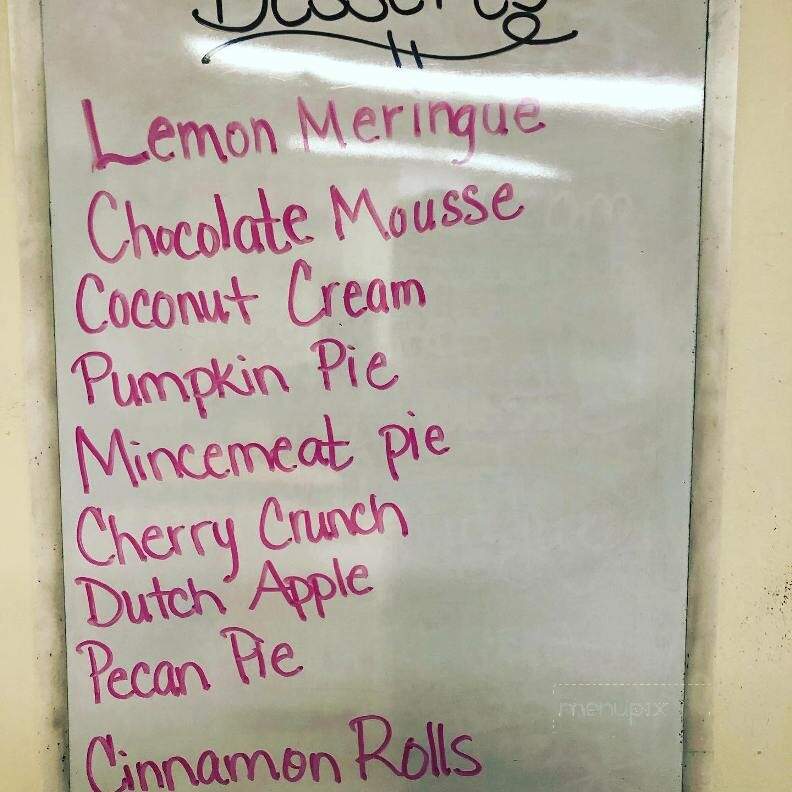 Desserts
Lemon Meringue
Chocolate Mousse
Coconut Cream
Pumpkin Pie
Mincemeat pie
Cherry Crunch
Dutch Apple
Pecan Pie
menupix
Cinnamon Rolls